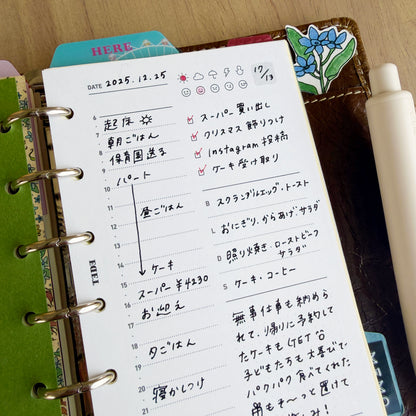 HERE
DATE 2025.12.25
17/13
6 起床
7 朝ごはん
8 保育園送り
9 パート
10
11 昼ごはん
12
13
14
15 ケーキ
16 スーパー ¥4230
17 お迎え
18
19 夕ごはん
20
21 寝かしつけ
TODO
スーパー買い出し
クリスマス飾りつけ
Instagram投稿
ケーキ受け取り
B スクランブルエッグ・トースト
L おにぎり、からあげ サラダ
D 照り焼き・ローストビーフ
サラダ
S ケーキ・コーヒー
無事仕事も納めら
れて、帰りに予約して
たケーキもGET
子どもたちも大喜びで
パクパク食べてくれた
MEMO